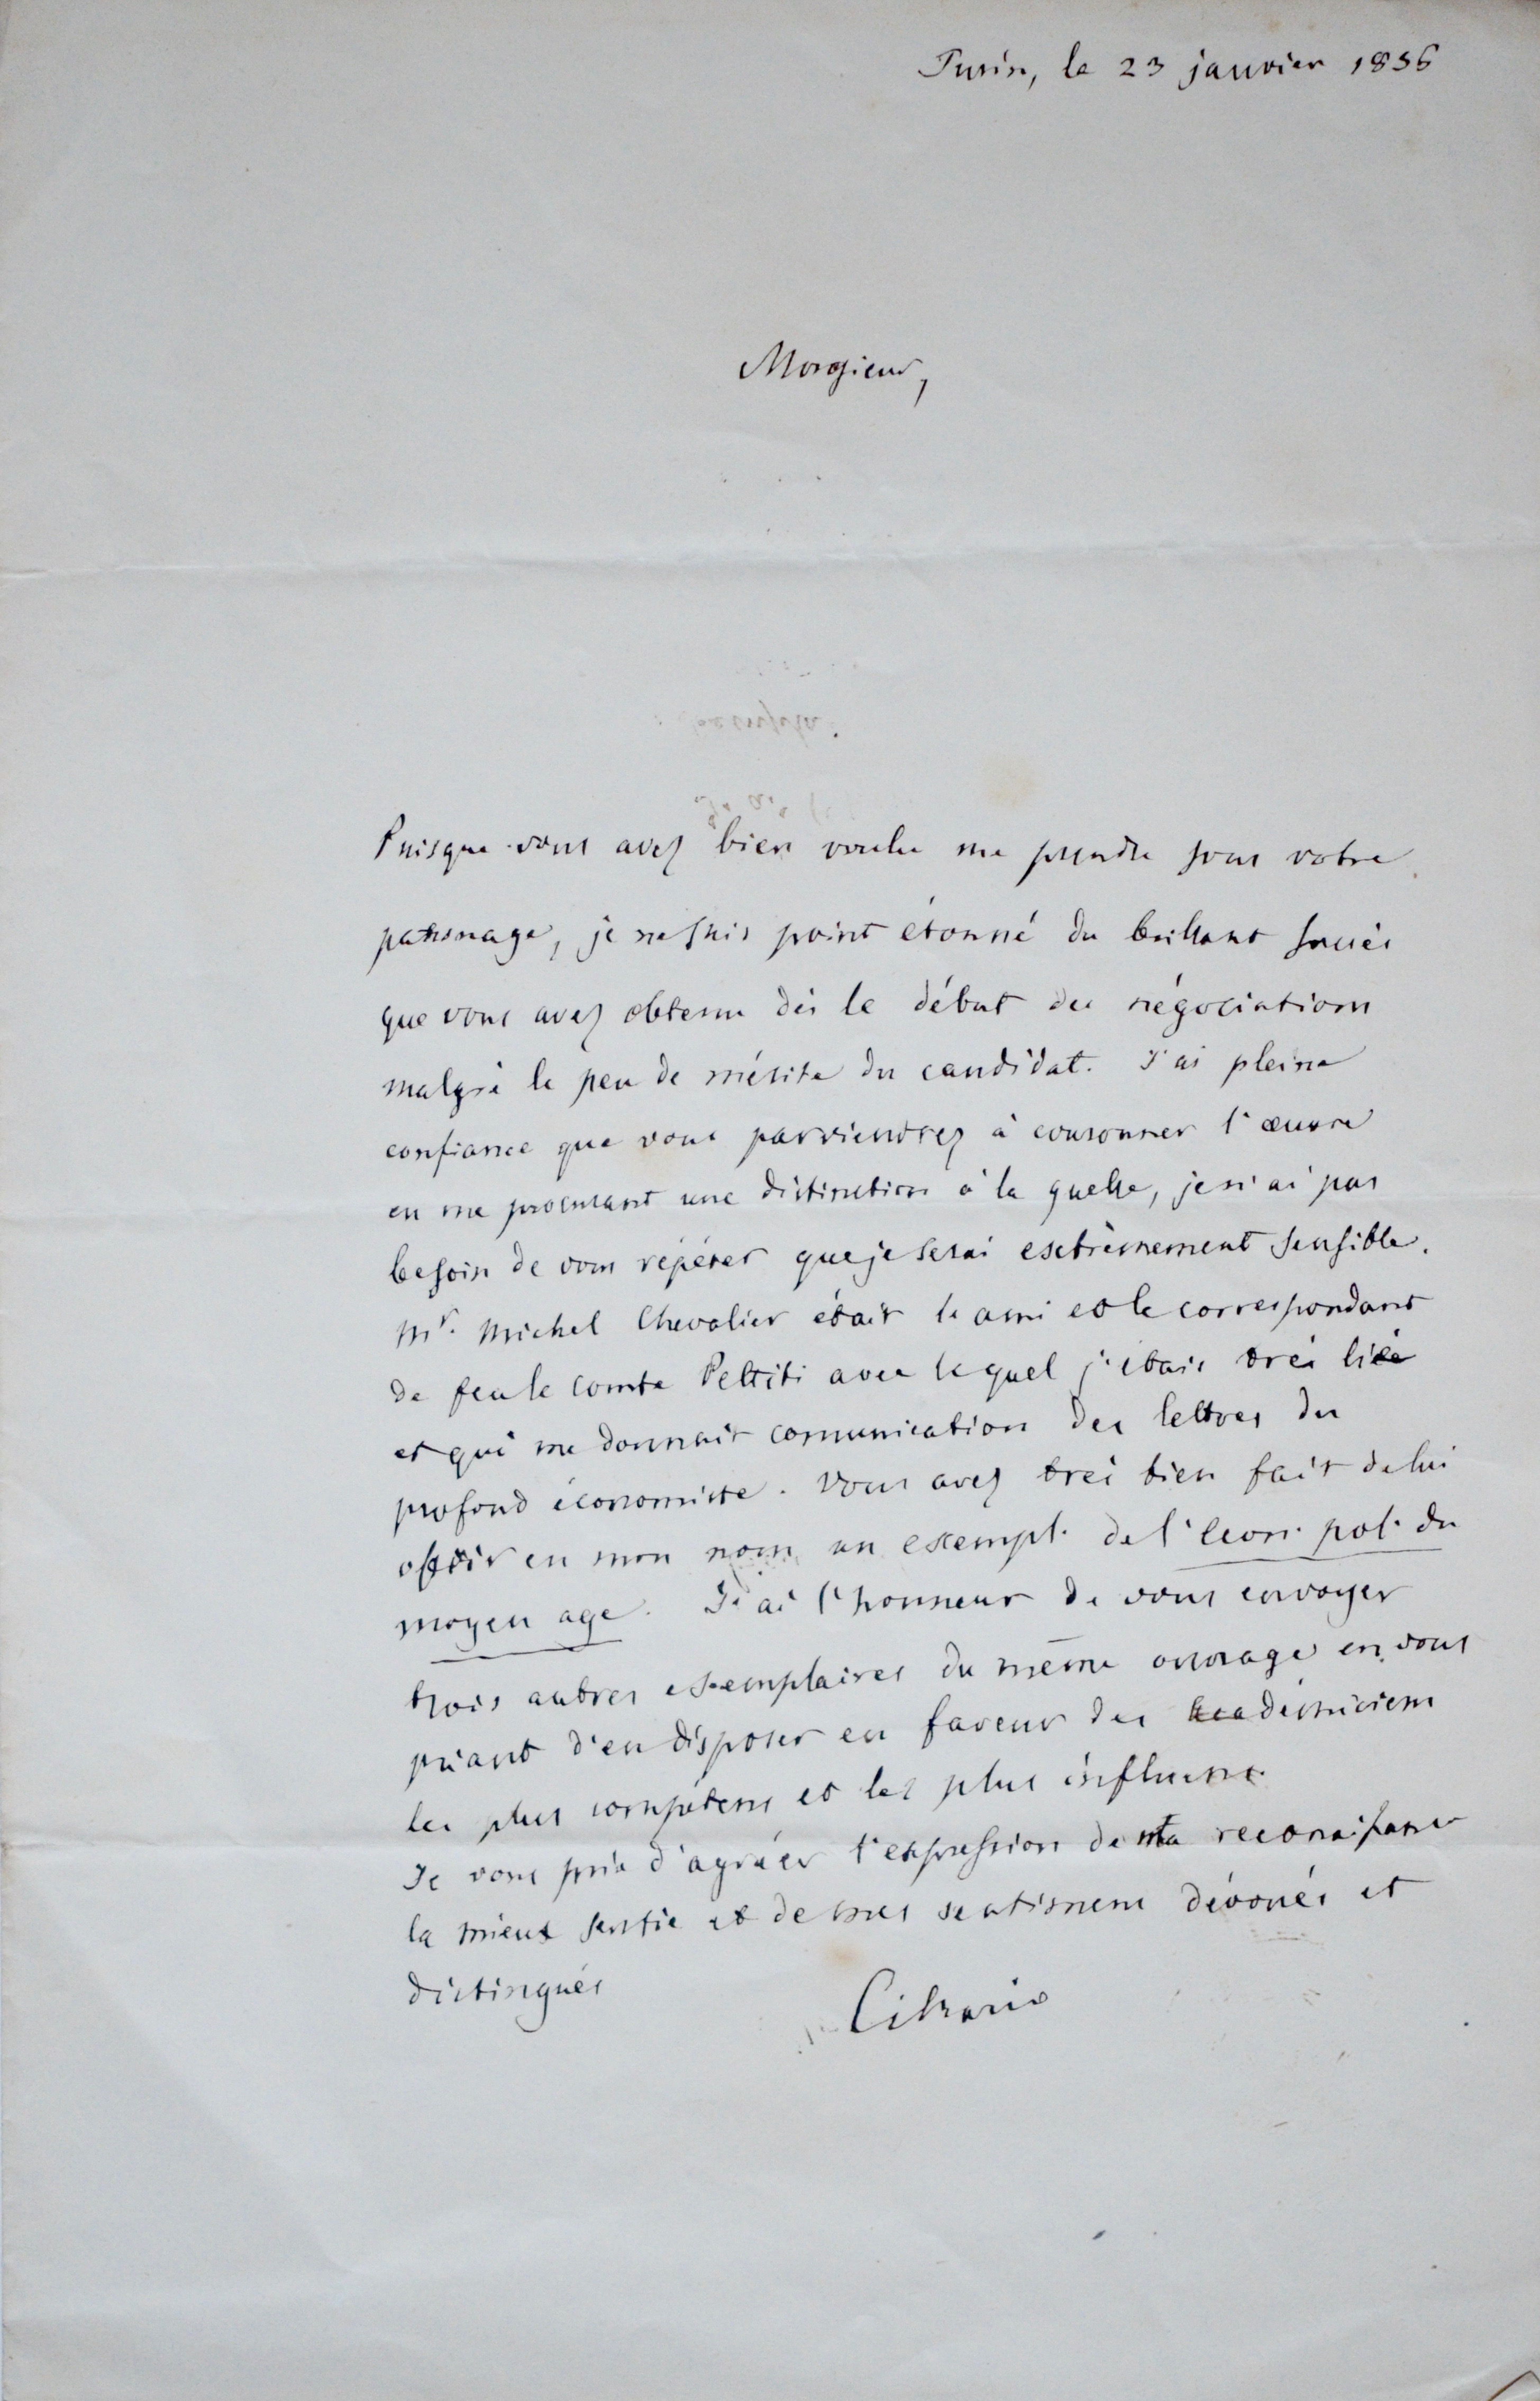 Turin, le 23 janvier 1856
Monsieur,
Puisque vous avez bien voulu me prendre sous votre
patronage, je ne suis point étonné du brillant succès
que vous avez obtenu dès le début des négociations
malgré le peu de mérite du candidat. J'ai pleine
confiance que vous parviendrez à couronner l'œuvre
en me procurant une distinction à la quelle, je n'ai pas
besoin de vous répéter que je serai extrèmement sensible.
Mr. Michel Chevalier était le ami et le correspondant
de feu le comte Pettiti avec lequel j'étais très lié
et qui me donnait comunication des lettres du
profond économiste. Vous avez très bien fait de lui
offrir en mon nom un exempl. de l'Econ. pol. du
moyen age. J'ai l'honneur de vous envoyer
trois autres exemplaires du même ouvrage en vous
priant d'en disposer en faveur des académiciens
les plus compétens et les plus influens
Je vous prie d'agréer l'expression de ma reconaissance
la mieux sentie et de mes sentimens dévoués et
distingués
Cibrario